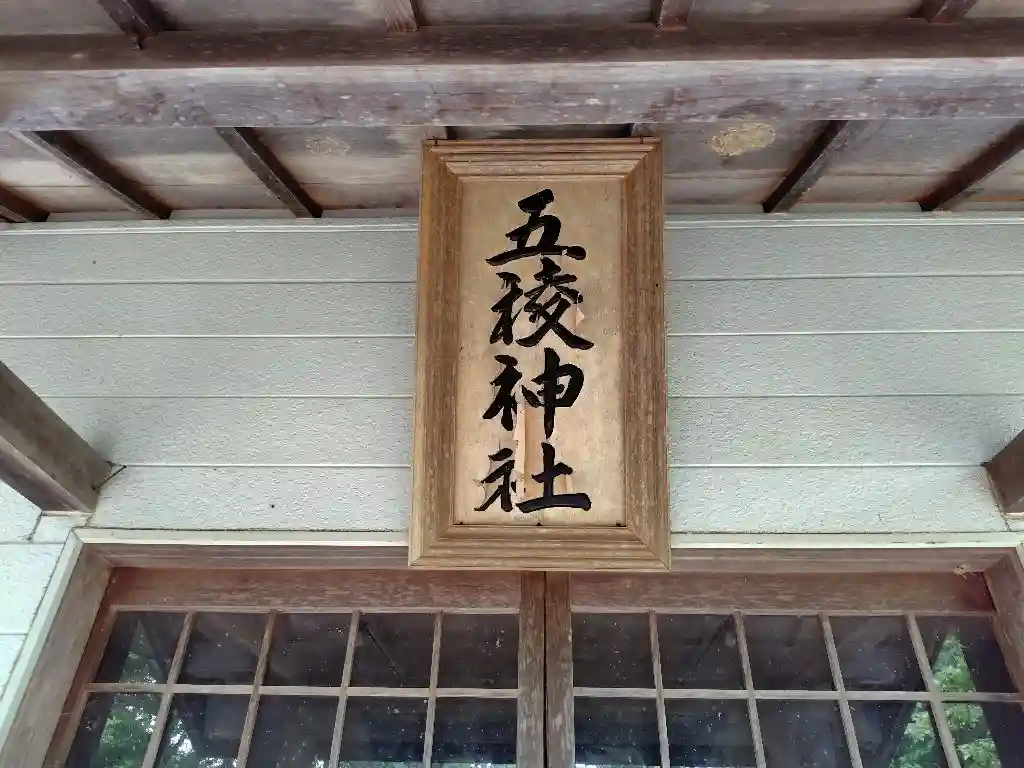 五稜神社